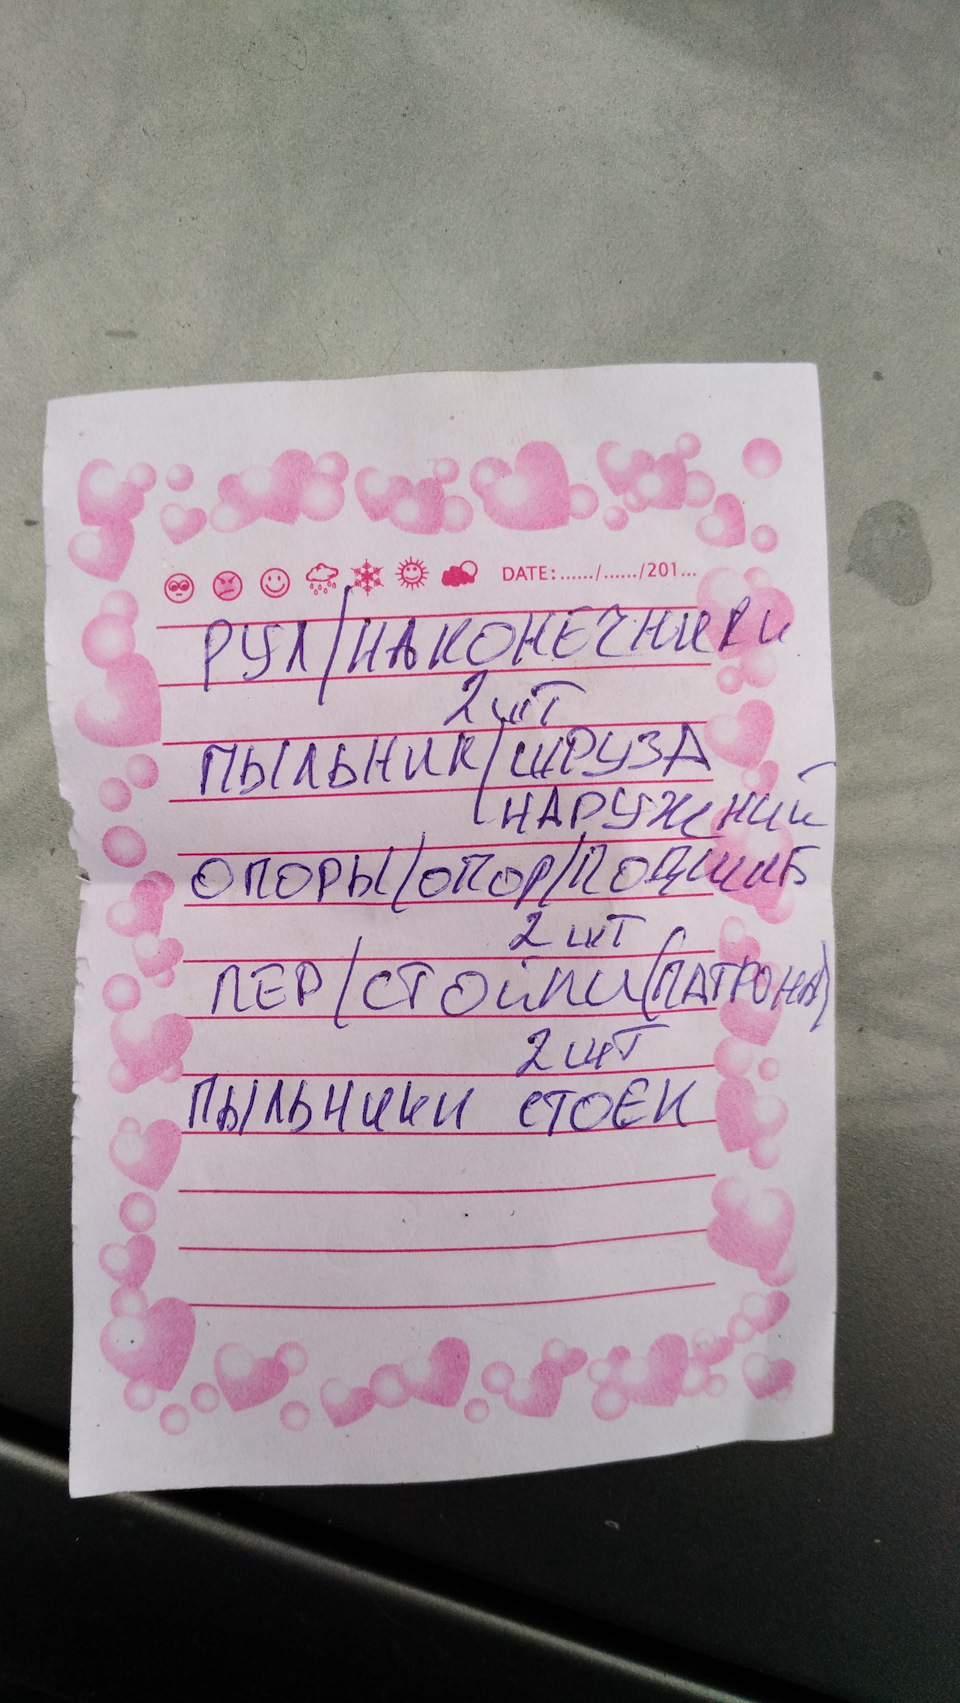 DATE:....../....../201...
РУЛ/НАКОНЕЧНИКИ
2 шт
ПЫЛЬНИК/ШРУЗА
НАРУЖНИЙ
ОПОРЫ/ОПОР/ПОДШИБ
2 шт
ПЕР/СТОЙКИ(ПАТРОНА)
2 шт
ПЫЛЬНИКИ СТОЕК